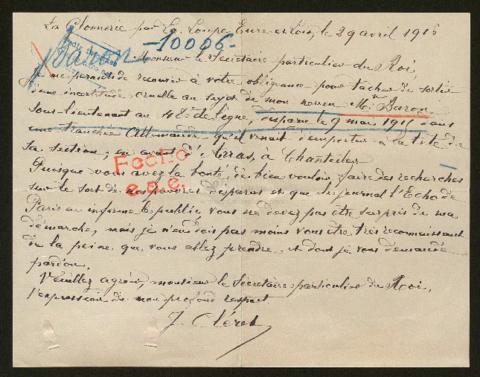 La Plonnerie par La Loupe, Eure et Loir, le 29 avril 1916
Baron
-10006-
Monsieur le Secrétaire particulier du Roi,
Je me permets de recourir à votre obligeance pour tâcher de sortir
d'une incertitude cruelle au sujet de mon neveu Mr Baron
sous-lieutenant au de ligne, disparu le 9 mai 1915 dans
une tranchée Allemande qu'il venait d'emporter à la tête de
sa section, en avant d'Arras, à Chantecler
Puisque vous avez la bonté de bien vouloir faire des recherches
sur le sort de nos pauvres disparus et que le journal l'Echo de
Paris en informe le public, vous ne devez pas être surpris de ma
démarche, mais je n'en serai pas moins vous être très reconnaissant
de la peine que vous allez prendre et dont je vous demande
pardon.
Veuillez agréer monsieur le Secrétaire particulier du Roi,
l'expression de mon profond respect
J. Cléret